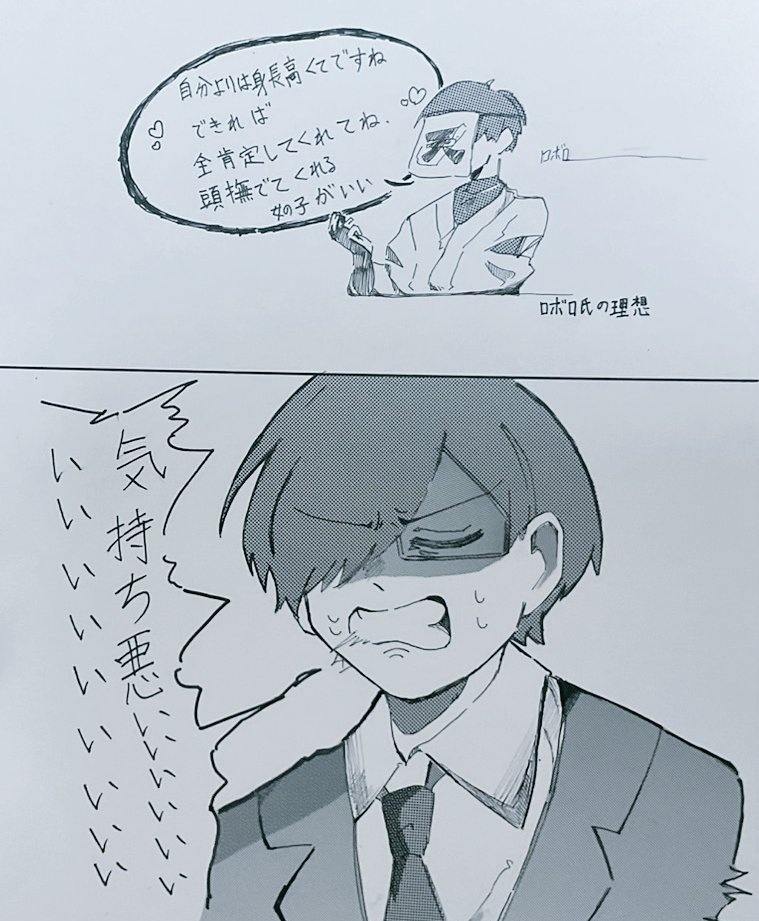 自分よりは身長高くてですね
できれば
全肯定してくれてね、
頭撫でてくれる
女の子がいい
ロボロ
ロボロ氏の理想
気持ち悪いいいいいい
いいいいいいいいい